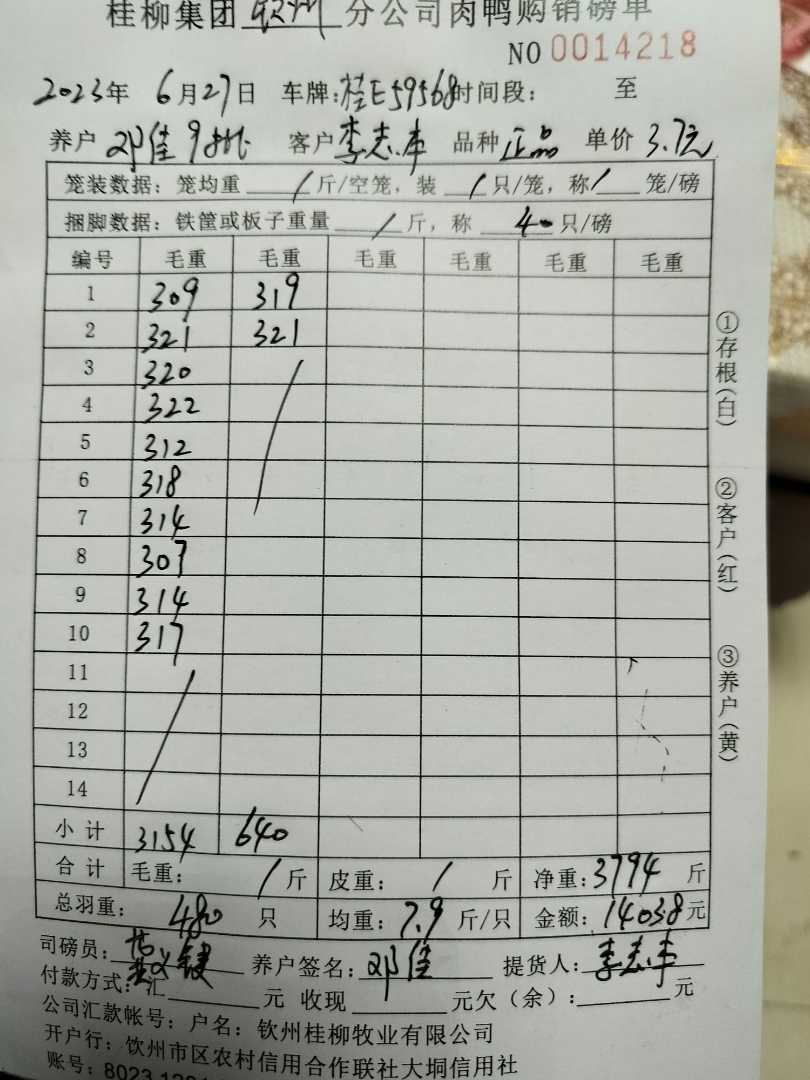 桂柳集团 钦州 分公司肉鸭购销磅单
NO 0014218
2023年 6月27日 车牌:桂E59568时间段: 至
养户 邓佳9批 客户李志库 品种 正品 单价 3.7元
笼装数据: 笼均重 / 斤/空笼, 装 / 只/笼, 称/ 笼/磅
捆脚数据: 铁筐或板子重量 / 斤, 称 40 只/磅
编号 毛重 毛重 毛重 毛重 毛重 毛重
1 309 319
2 321 321
3 320
4 322
5 312
6 318
7 314
8 307
9 314
10 317
11
12
13
14
小计 3154 640
合计 毛重: / 斤 皮重: / 斤 净重:3794 斤
总羽重: 480 只 均重: 7.9 斤/只 金额: 14038元
司磅员: 养户签名: 邓佳 提货人: 李志库
付款方式: 汇 元 收现 元欠(余): 元
公司汇款帐号: 户名: 钦州桂柳牧业有限公司
开户行: 钦州市区农村信用合作联社大垌信用社
账号: 8023
①存根(白)
②客户(红)
③养户(黄)